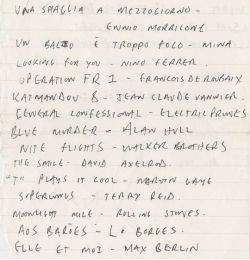 UNA SPIAGLIA A MEZZOGIORNO -
ENNIO MORRICONE
UN BACIO È TROPPO POCO - MINA
LOOKING FOR YOU - NINO FERRER.
OPERATION FR 1 - FRANCOIS DE ROUBAIX
KATMANDOU 8 - JEAN CLAUDE VANNIER.
GENERAL CONFESSIONAL - ELECTRIC PRUNES
BLUE MURDER - ALAN HULL
NITE FLIGHTS - WALKER BROTHERS
THE SMILE - DAVID AXELROD.
"T" PLAYS IT COOL - MARVIN GAYE
SUPERLUNGS - TERRY REID.
MOONLIGHT MILE - ROLLING STONES.
AOS BARÕES - LO BORGES.
ELLE ET MOI - MAX BERLIN